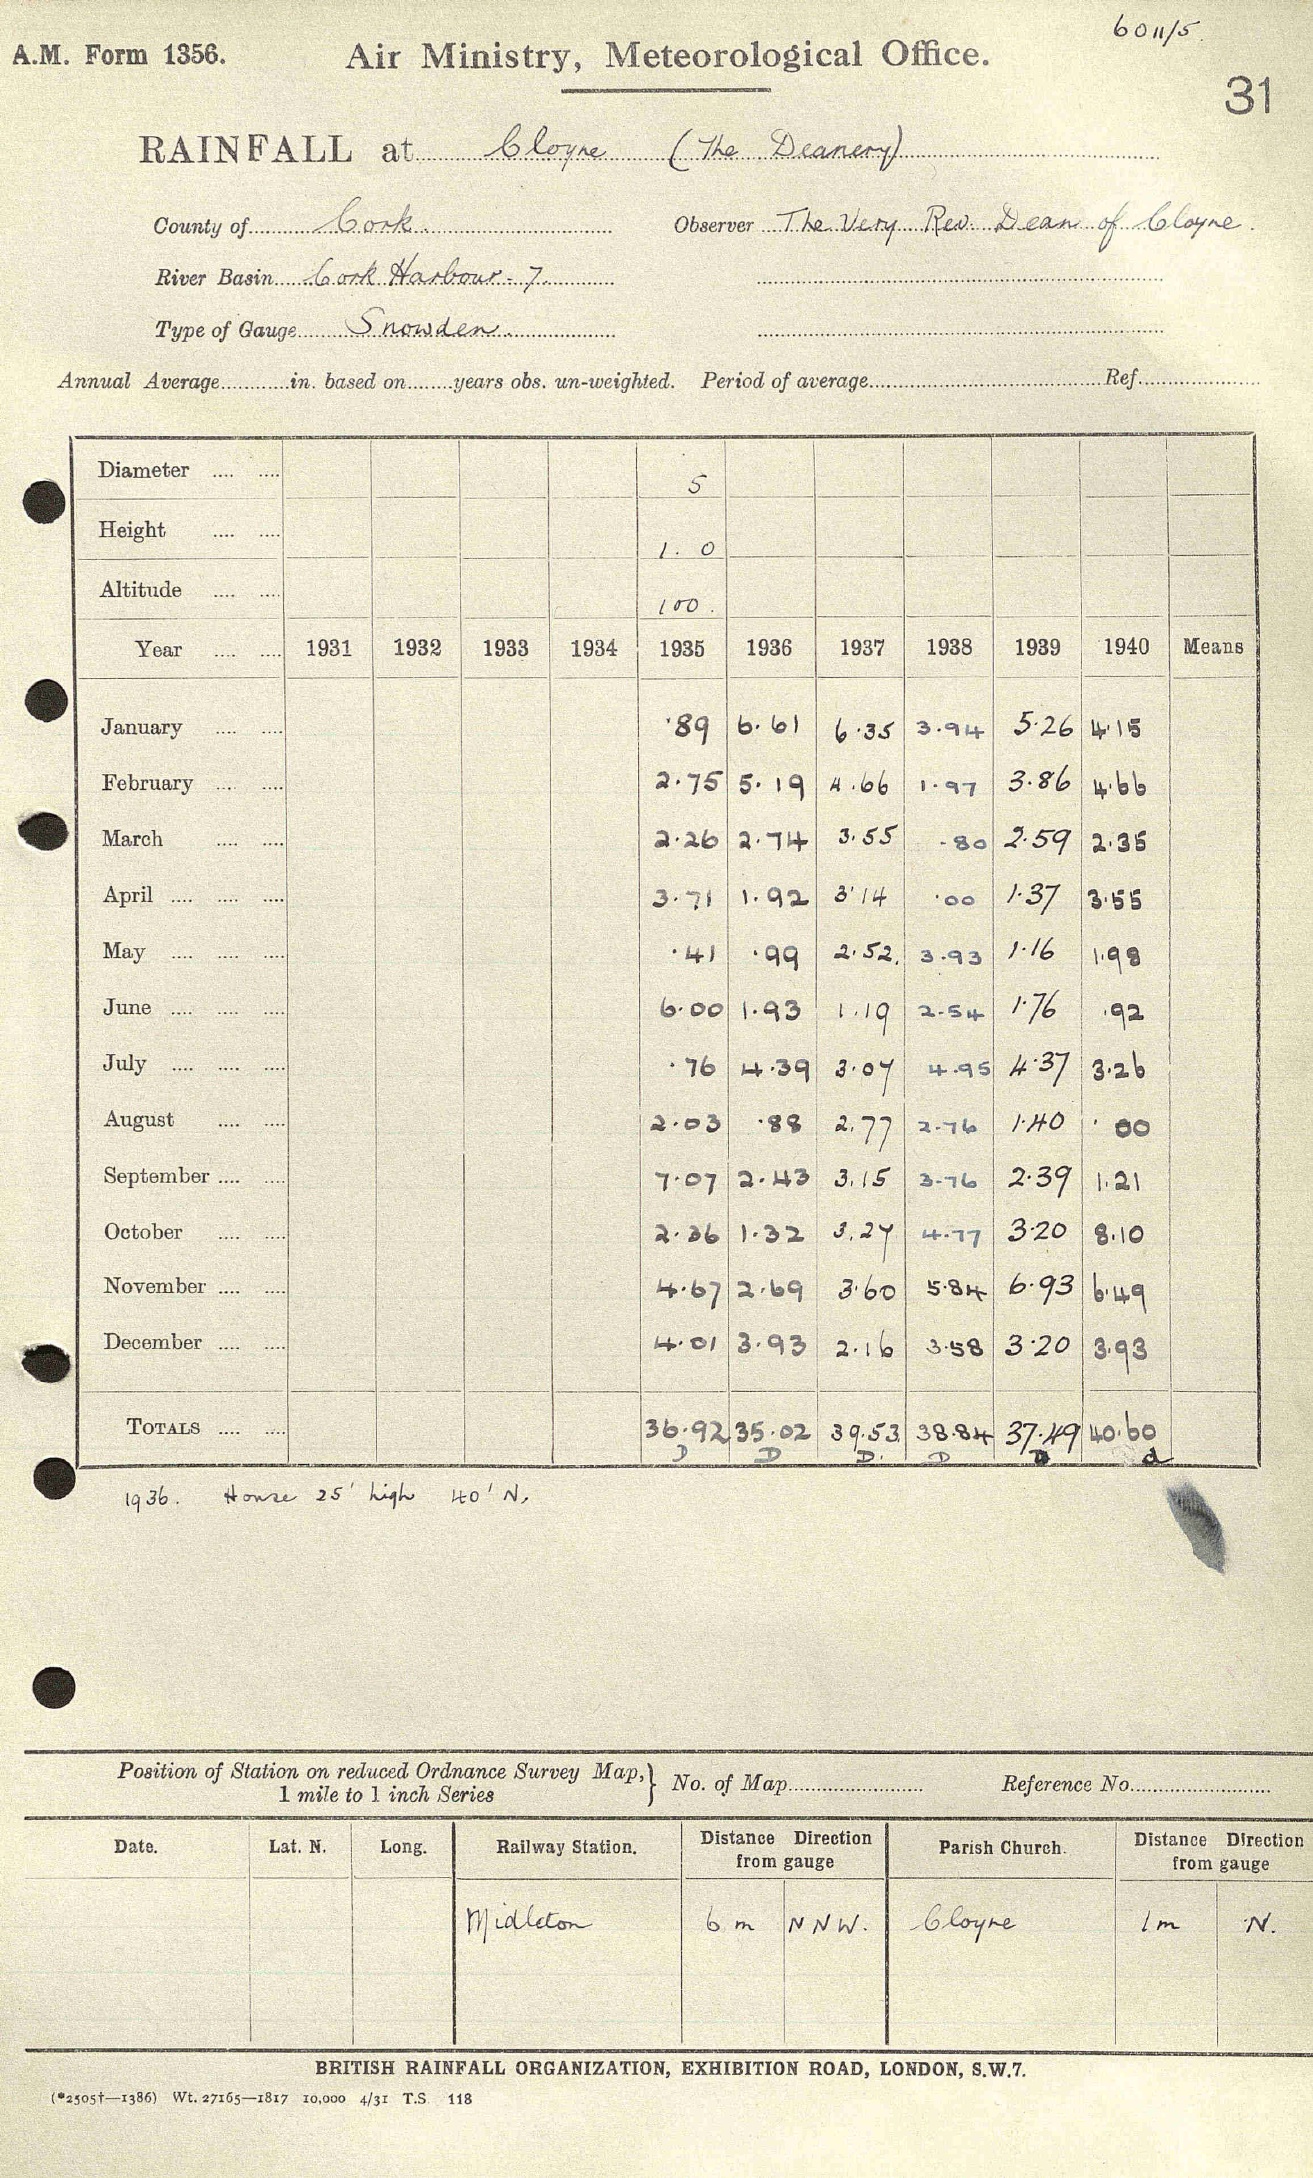 6011/5.
A.M. Form 1356. Air Ministry, Meteorological Office.
31
RAINFALL at Cloyne (The Deanery)
County of Cork. Observer The Very Rev. Dean of Cloyne.
River Basin Cork Harbour - 7.
Type of Gauge Snowden.
Annual Average in. based on years obs. un-weighted. Period of average Ref.
Diameter 5
Height 1. 0
Altitude 100.
Year 1931 1932 1933 1934 1935 1936 1937 1938 1939 1940 Means
January ·89 6.61 6.35 3.94 5.26 4.15
February 2.75 5.19 4.66 1.97 3.86 4.66
March 2.26 2.74 3.55 .80 2.59 2.35
April 3.71 1.92 3.14 .00 1.37 3.55
May .41 .99 2.52. 3.93 1.16 1.98
June 6.00 1.93 1.19 2.54 1.76 .92
July .76 4.39 3.07 4.95 4.37 3.26
August 2.03 .88 2.77 2.76 1.40 .00
September 7.07 2.43 3.15 3.76 2.39 1.21
October 2.36 1.32 3.27 4.77 3.20 8.10
November 4.67 2.69 3.60 5.84 6.93 6.49
December 4.01 3.93 2.16 3.58 3.20 3.93
TOTALS 36.92 35.02 39.53 38.84 37.49 40.60
D D D. D D d
1936. House 25' high 40' N.
Position of Station on reduced Ordnance Survey Map, } No. of Map Reference No.
1 mile to 1 inch Series
Date. Lat. N. Long. Railway Station. Distance Direction from gauge Parish Church. Distance Direction from gauge
Midleton 6 m NNW. Cloyne 1 m N.
BRITISH RAINFALL ORGANIZATION, EXHIBITION ROAD, LONDON, S.W.7.
(*2505†—1386) Wt. 27165—1817 10,000 4/31 T.S 118